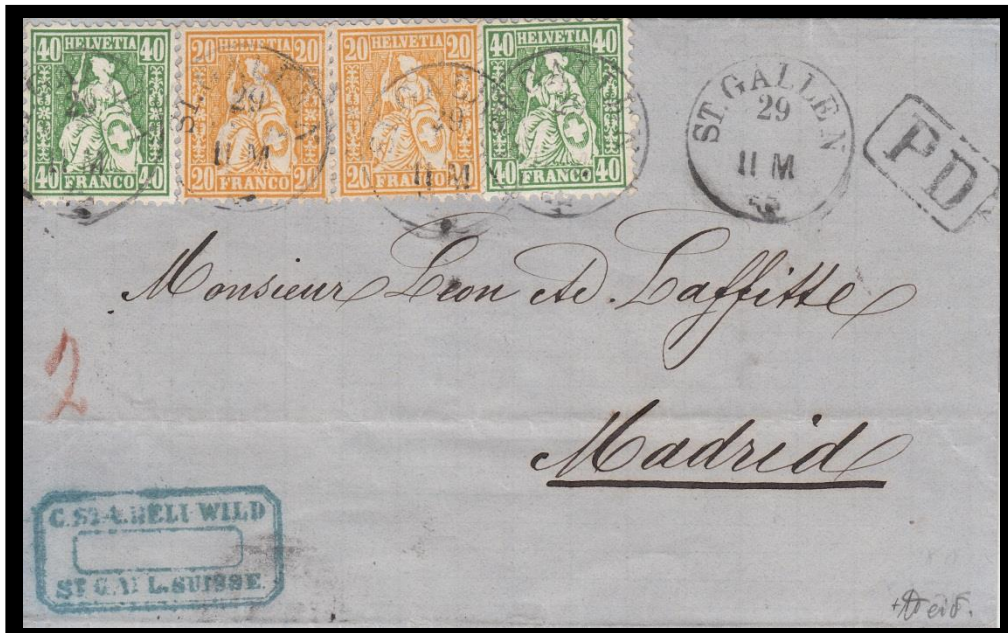 40 HELVETIA 40
40 FRANCO 40
20 HELVETIA 20
20 FRANCO 20
20 HELVETIA 20
20 FRANCO 20
40 HELVETIA 40
40 FRANCO 40
ST. GALLEN
29
II M
ST. GALLEN
29
II M
PD
Monsieur Leon Ad. Laffitte
2
Madrid
WILD
ST GALL. SUISSE